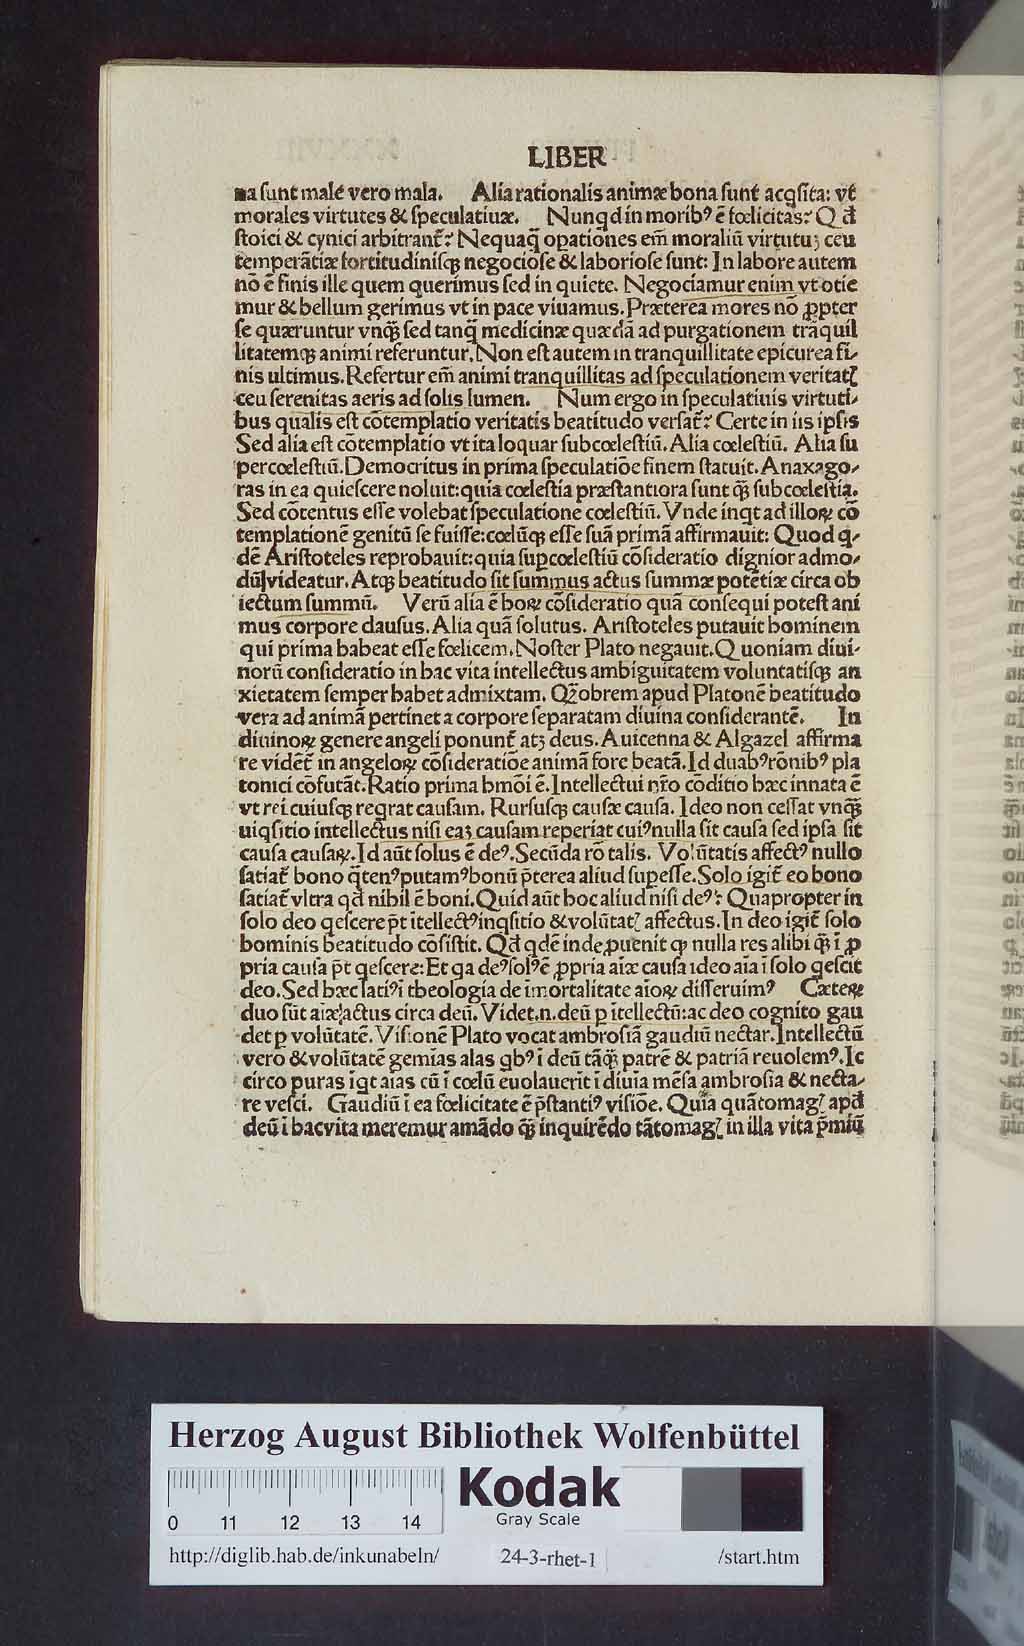 LIBER
na sunt male vero mala. Alia rationalis animæ bona sunt acq̃sita: vt
morales virtutes & speculatiuæ. Nunqd in moribꝰ ē fœlicitas? Qď
stoici & cynici arbitrant̃? Nequaq̃ opationes em̃ moraliū virtutuꝫ ceu
temperātiæ fortitudinisqꝫ negociose & laboriose sunt: In labore autem
nō ē finis ille quem querimus sed in quiete. Negociamur enim vt ocie
mur & bellum gerimus vt in pace viuamus. Præterea mores nō ꝓpter
se quæruntur vnqꝫ̃ sed tanq̃ medicinæ quædā ad purgationem trāquil
litatemqꝫ animi referuntur. Non est autem in tranquillitate epicurea fi⸗
nis ultimus. Refertur em̃ animi tranquillitas ad speculationem veritatꝭ
ceu serenitas aeris ad solis lumen. Num ergo in speculatiuis virtuti⸗
bus qualis est cōtemplatio veritatis beatitudo versat̃? Certe in iis ipsis
Sed alia est cōtemplatio vt ita loquar subcœlestiū. Alia cœlestiū. Alia su
percœlestiū. Democritus in prima speculatiōe finem statuit. Anaxago⸗
ras in ea quiescere noluit: quia cœlestia præstantiora sunt qꝫ̃ subcœlestia.
Sed cōtentus esse volebat speculatione cœlestiū. Vnde inqt ad illoꝝ cō
templationē genitū se fuisse: cœlūqꝫ esse suā primā affirmauit: Quod q⸗
dē Aristoteles reprobauit: quia suꝑcœlestiū cōsideratio dignior admo⸗
dū videatur. Atqꝫ beatitudo sit summus actus summæ potētiæ circa ob
iectum summū. Verū alia ē hoꝝ cōsideratio quā consequi potest ani
mus corpore clausus. Alia quā solutus. Aristoteles putauit hominem
qui prima habeat esse fœlicem. Noster Plato negauit. Quoniam diui⸗
norū consideratio in hac vita intellectus ambiguitatem voluntatisqꝫ an
xietatem semper habet admixtam. Qꝫobrem apud Platonē beatitudo
vera ad animā pertinet a corpore separatam diuina considerantē. In
diuinoꝝ genere angeli ponunt̃ atꝫ deus. Auicenna & Algazel affirma
re vident̃ in angeloꝝ cōsideratiōe animā fore beatā. Id duabꝰ rōnibꝰ pla
tonici cōfutāt. Ratio prima hmōi ē. Intellectui nr̄o cōditio hæc innata ē
vt rei cuiusqꝫ reqrat causam. Rursusqꝫ causæ causa. Ideo non cessat vnqꝫ̃
uiqsitio intellectus nisi eaꝫ causam reperiat cuiꝰ nulla sit causa sed ipsa sit
causa causaꝝ. Id aūt solus ē deꝰ. Secūda rō talis. Volūtatis affectꝰ nullo
satiat̃ bono q̃tenꝰ putamꝰ bonū p̄terea aliud supesse. Solo igit̃ eo bono
satiat̃ vltra qď nihil ē boni. Quid aūt hoc aliud nisi deꝰ? Quapropter in
solo deo qescere pōt ītellectꝰ inqsitio & volūtatꝭ affectus. In deo igit̃ solo
hominis beatitudo cōsistit. Qď qdē inde ꝓuenit ꝙ nulla res alibi qꝫ̃ ī ꝓ
pria causa pōt qescere: Et qa deꝰ solꝰ ē ꝓpria aīæ causa ideo aīa ī solo qescit
deo. Sed hæc latiꝰ ī theologia de īmortalitate aīoꝝ disseruimꝰ Cæteꝝ
duo sūt aīæ actus circa deū. Videt .n. deū ꝑ ītellectū: ac deo cognito gau
det ꝑ volūtatē. Visionē Plato vocat ambrosiā gaudiū nectar. Intellectū
vero & volūtatē gemias alas qbꝰ ī deū tāqꝫ̃ patrē & patriā reuolemꝰ. Ic
circo puras īqt aīas cū ī cœlū euolauerit ī diuia mēsa ambrosia & necta⸗
re vesci. Gaudiū ī ea fœlicitate ē p̄stantiꝰ visiōe. Quia quātomagꝭ apď
deū ī hac vita meremur amādo qꝫ̃ inquirēdo tātomagꝭ in illa vita p̄miū
Herzog August Bibliothek Wolfenbüttel
Kodak
Gray Scale
0 11 12 13 14
http://diglib.hab.de/inkunabeln/ 24-3-rhet-1 /start.htm